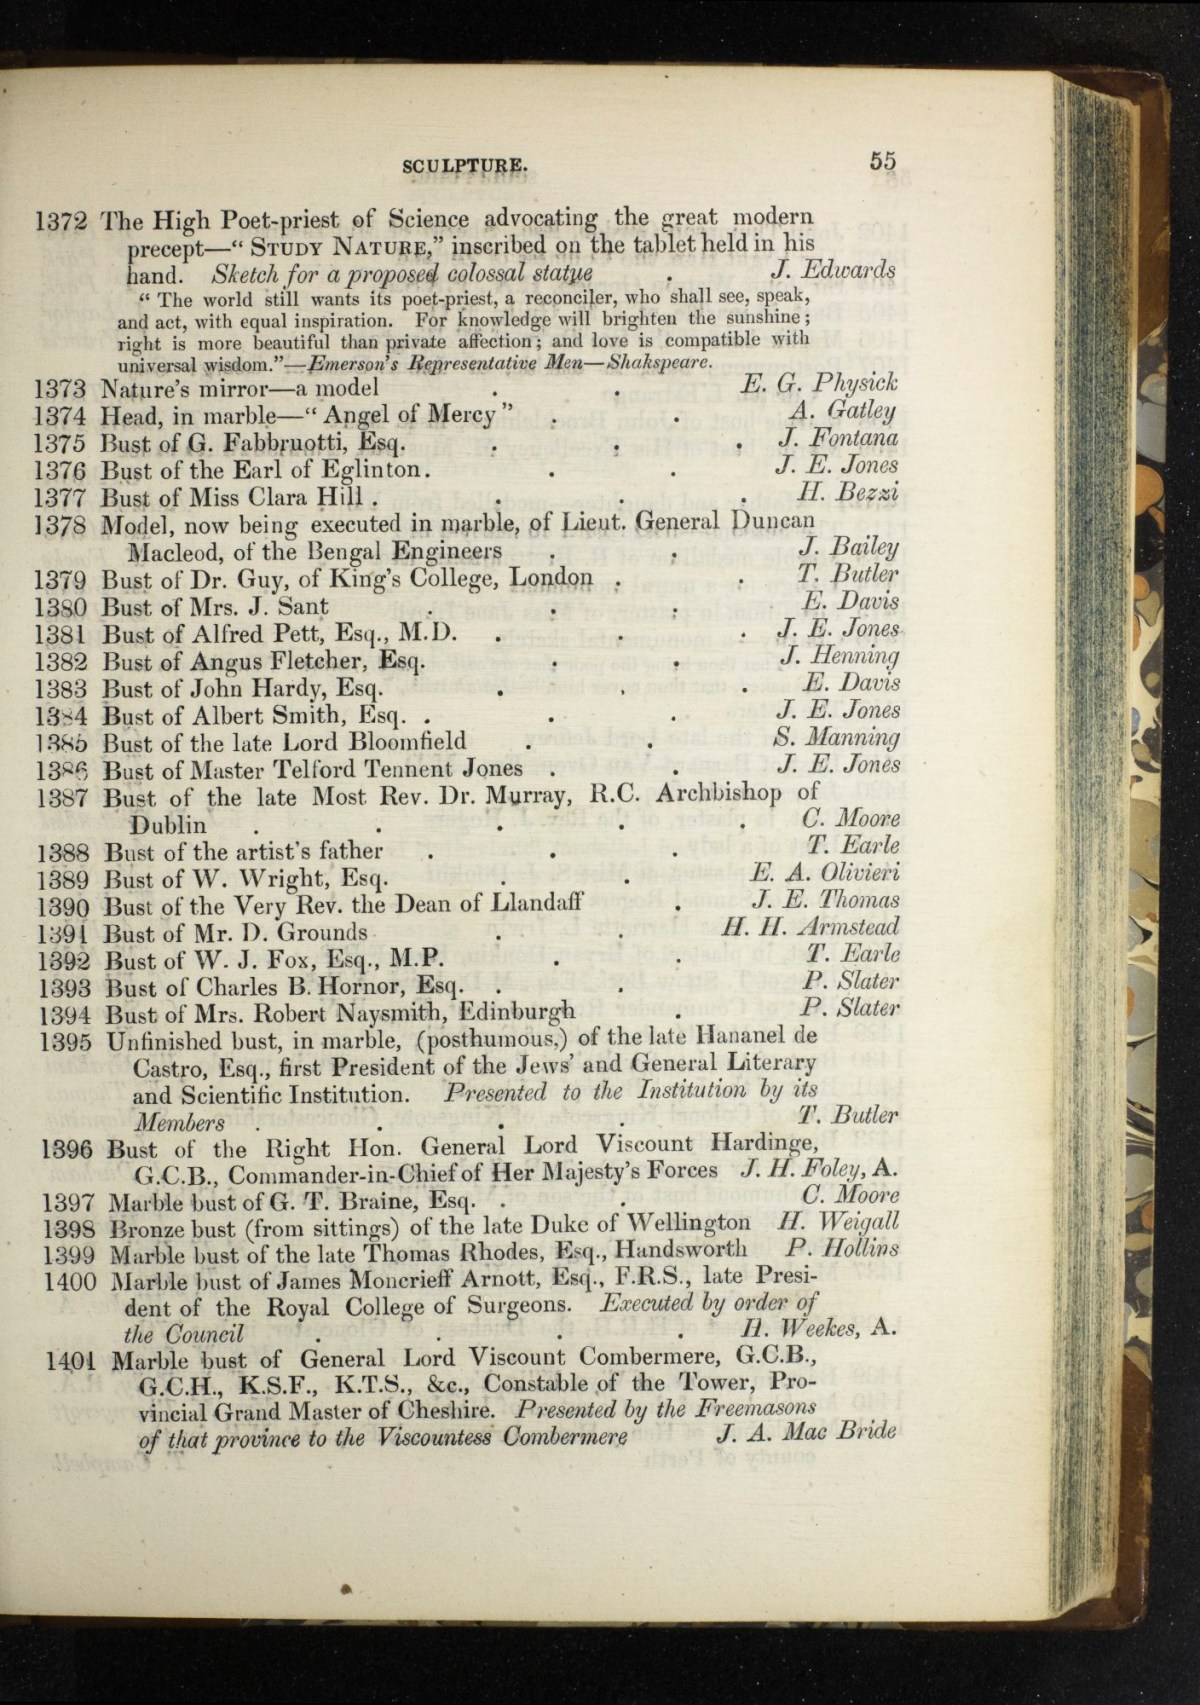 SCULPTURE. 55
1372 The High Poet-priest of Science advocating the great modern
precept—“ STUDY NATURE,” inscribed on the tablet held in his
hand. Sketch for a proposed colossal statue . J. Edwards
“ The world still wants its poet-priest, a reconciler, who shall see, speak,
and act, with equal inspiration. For knowledge will brighten the sunshine ;
right is more beautiful than private affection ; and love is compatible with
universal wisdom.”—Emerson's Representative Men—Shakspeare.
1373 Nature's mirror—a model . . E. G. Physick
1374 Head, in marble—“ Angel of Mercy ” . . A. Gatley
1375 Bust of G. Fabbruotti, Esq. . . . J. Fontana
1376 Bust of the Earl of Eglinton . . . J. E. Jones
1377 Bust of Miss Clara Hill . . . . H. Bezzi
1378 Model, now being executed in marble, of Lieut. General Duncan
Macleod, of the Bengal Engineers . . J. Bailey
1379 Bust of Dr. Guy, of King's College, London . . T. Butler
1380 Bust of Mrs. J. Sant . . . E. Davis
1381 Bust of Alfred Pett, Esq., M.D. . . . J. E. Jones
1382 Bust of Angus Fletcher, Esq. . . J. Henning
1383 Bust of John Hardy, Esq. . . . E. Davis
1384 Bust of Albert Smith, Esq. . . . J. E. Jones
1385 Bust of the late Lord Bloomfield . . S. Manning
1386 Bust of Master Telford Tennent Jones . . J. E. Jones
1387 Bust of the late Most Rev. Dr. Murray, R.C. Archbishop of
Dublin . . . . . C. Moore
1388 Bust of the artist's father . . . T. Earle
1389 Bust of W. Wright, Esq. . . E. A. Olivieri
1390 Bust of the Very Rev. the Dean of Llandaff . J. E. Thomas
1391 Bust of Mr. D. Grounds . . H. H. Armstead
1392 Bust of W. J. Fox, Esq., M.P. . . T. Earle
1393 Bust of Charles B. Hornor, Esq. . . P. Slater
1394 Bust of Mrs. Robert Naysmith, Edinburgh . P. Slater
1395 Unfinished bust, in marble, (posthumous,) of the late Hananel de
Castro, Esq., first President of the Jews' and General Literary
and Scientific Institution. Presented to the Institution by its
Members . . . . T. Butler
1396 Bust of the Right Hon. General Lord Viscount Hardinge,
G.C.B., Commander-in-Chief of Her Majesty's Forces J. H. Foley, A.
1397 Marble bust of G. T. Braine, Esq. . . C. Moore
1398 Bronze bust (from sittings) of the late Duke of Wellington H. Weigall
1399 Marble bust of the late Thomas Rhodes, Esq., Handsworth P. Hollins
1400 Marble bust of James Moncrieff Arnott, Esq., F.R.S., late Presi-
dent of the Royal College of Surgeons. Executed by order of
the Council . . . . H. Weekes, A.
1401 Marble bust of General Lord Viscount Combermere, G.C.B.,
G.C.H., K.S.F., K.T.S., &c., Constable of the Tower, Pro-
vincial Grand Master of Cheshire. Presented by the Freemasons
of that province to the Viscountess Combermere J. A. Mac Bride